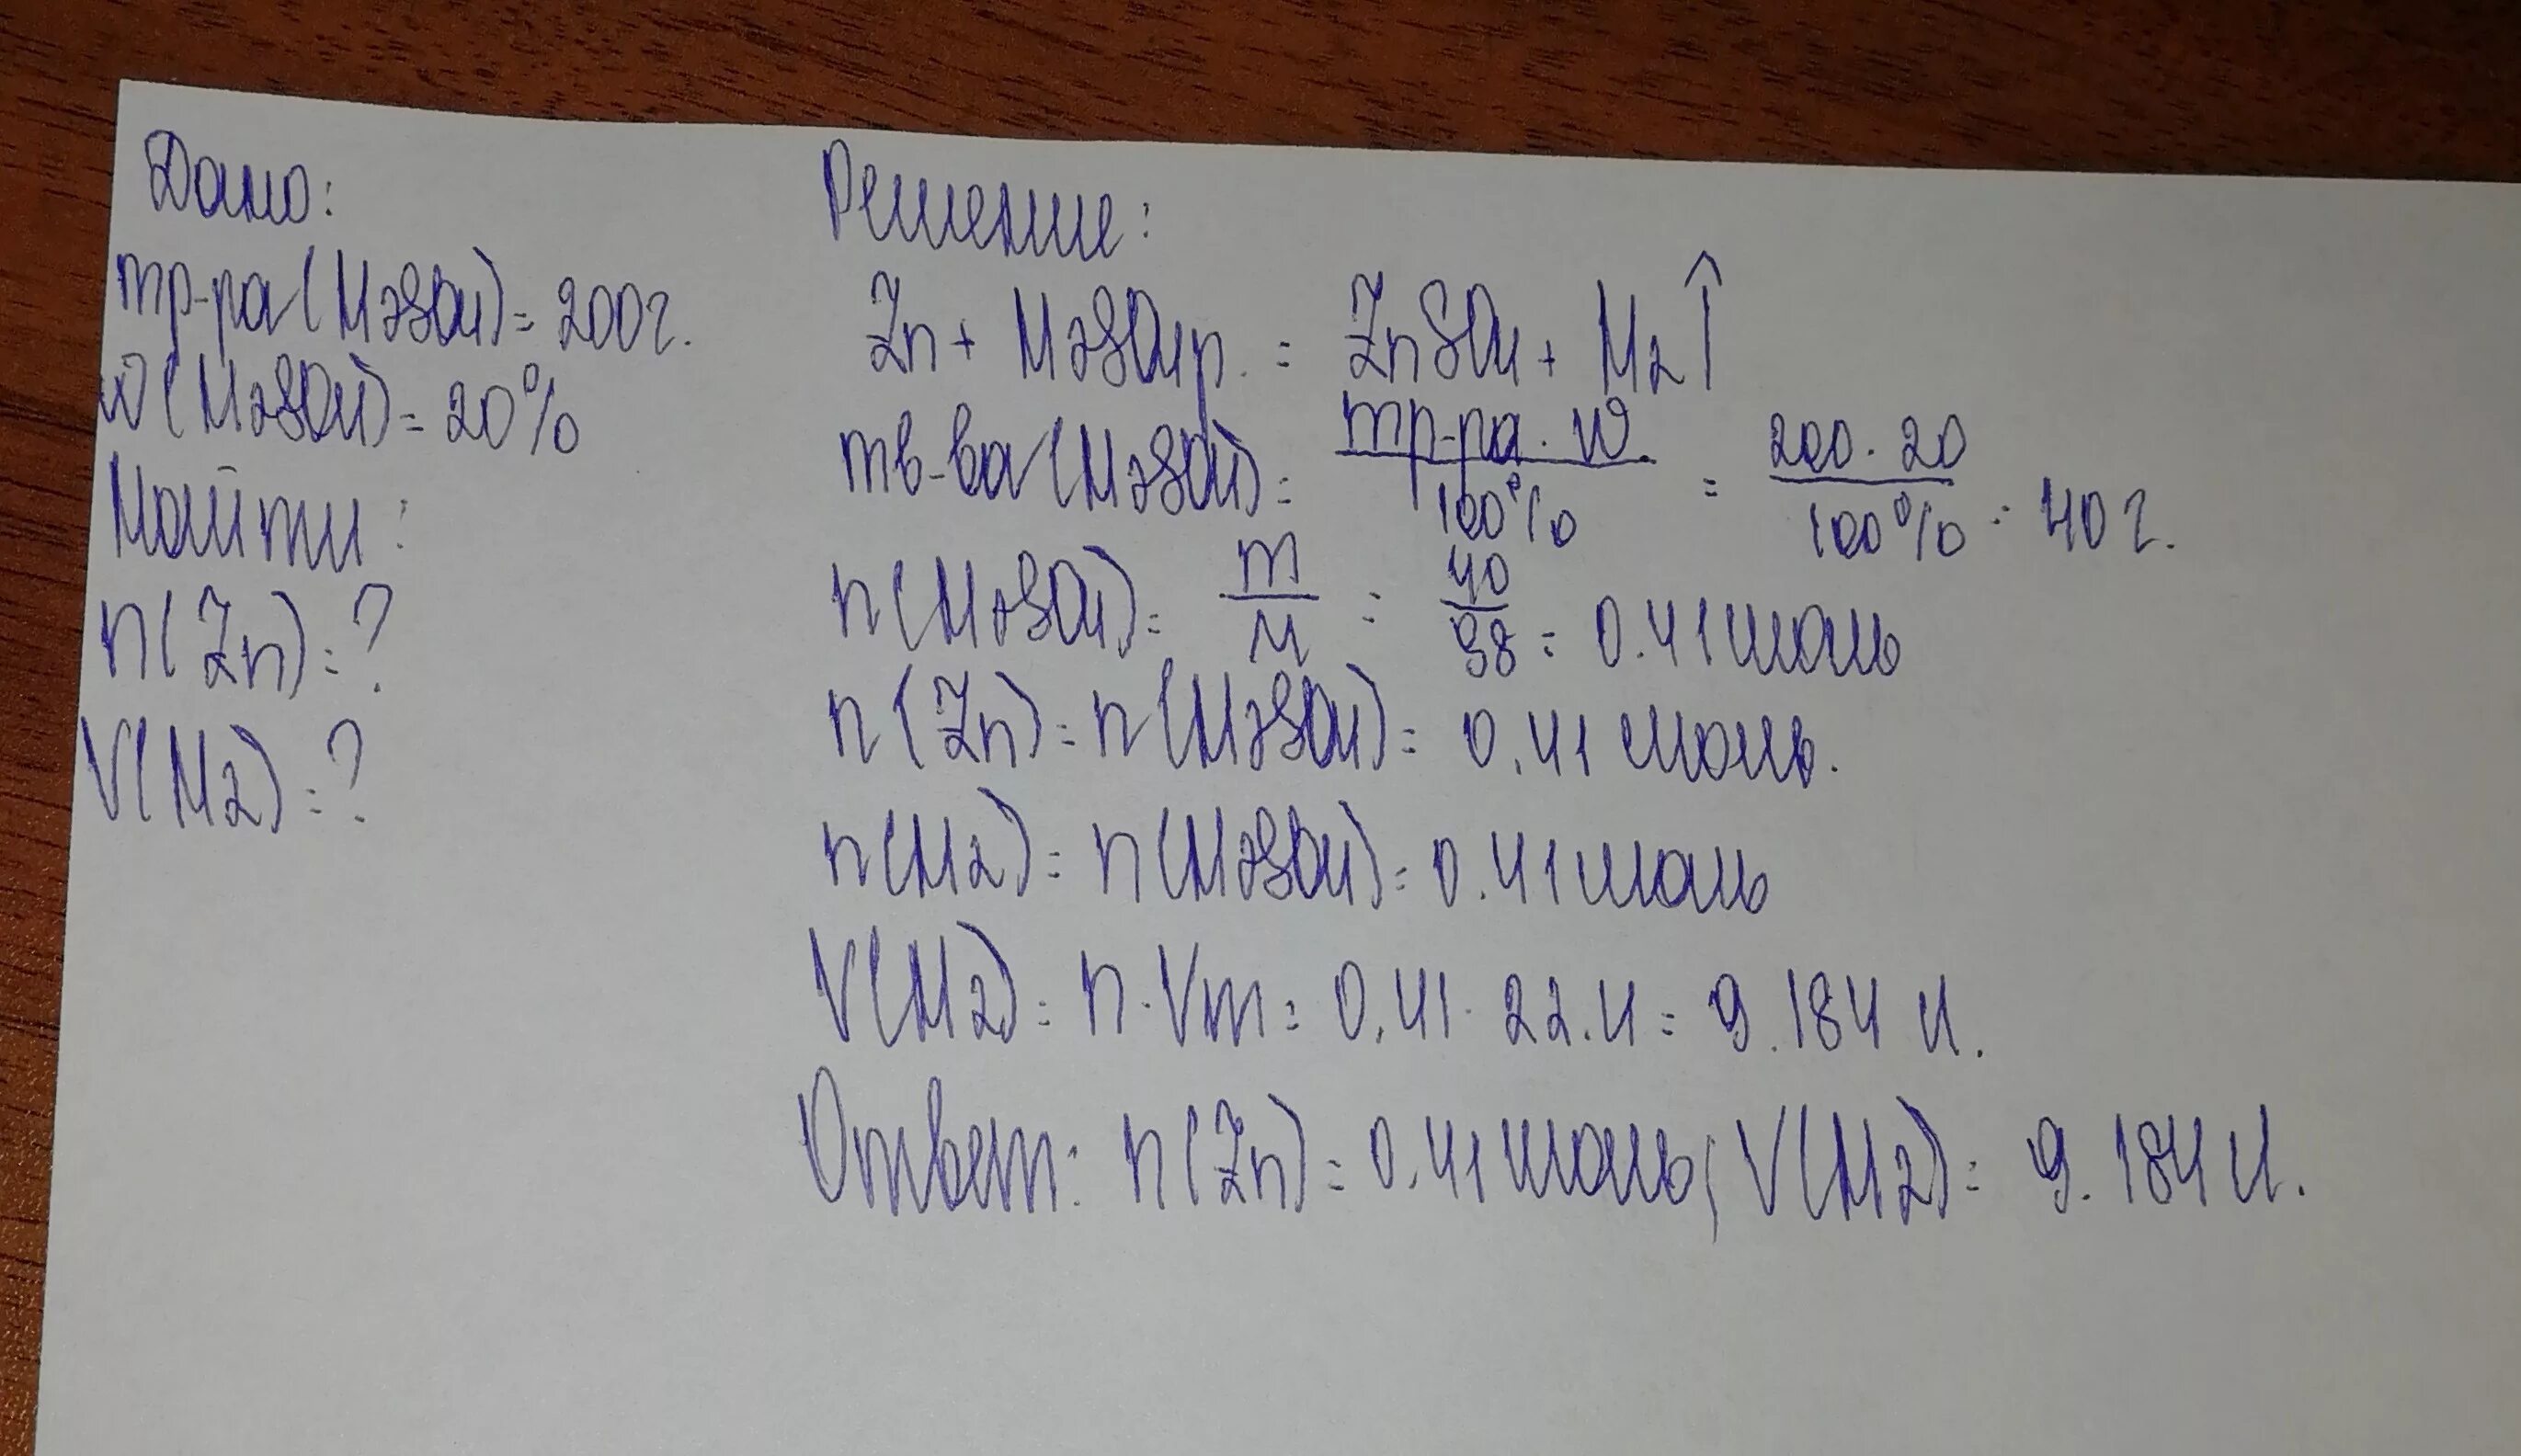 Дано:
mр-ра(H2SO4)=200г.
w(H2SO4)=20%
Найти:
n(Zn)=?
V(H2)=?
Решение:
Zn+ H2SO4р. = ZnSO4+ H2↑
mв-ва(H2SO4)= mр-ра·w. / 100% = 200·20 / 100% = 40г.
n(H2SO4)= m/M = 40/98 = 0.41моль
n(Zn)=n(H2SO4)= 0.41 моль.
n(H2)= n(H2SO4)= 0.41моль
V(H2)= n·Vm= 0.41· 22.4= 9.184 л.
Ответ: n(Zn)= 0.41моль; V(H2)= 9.184л.